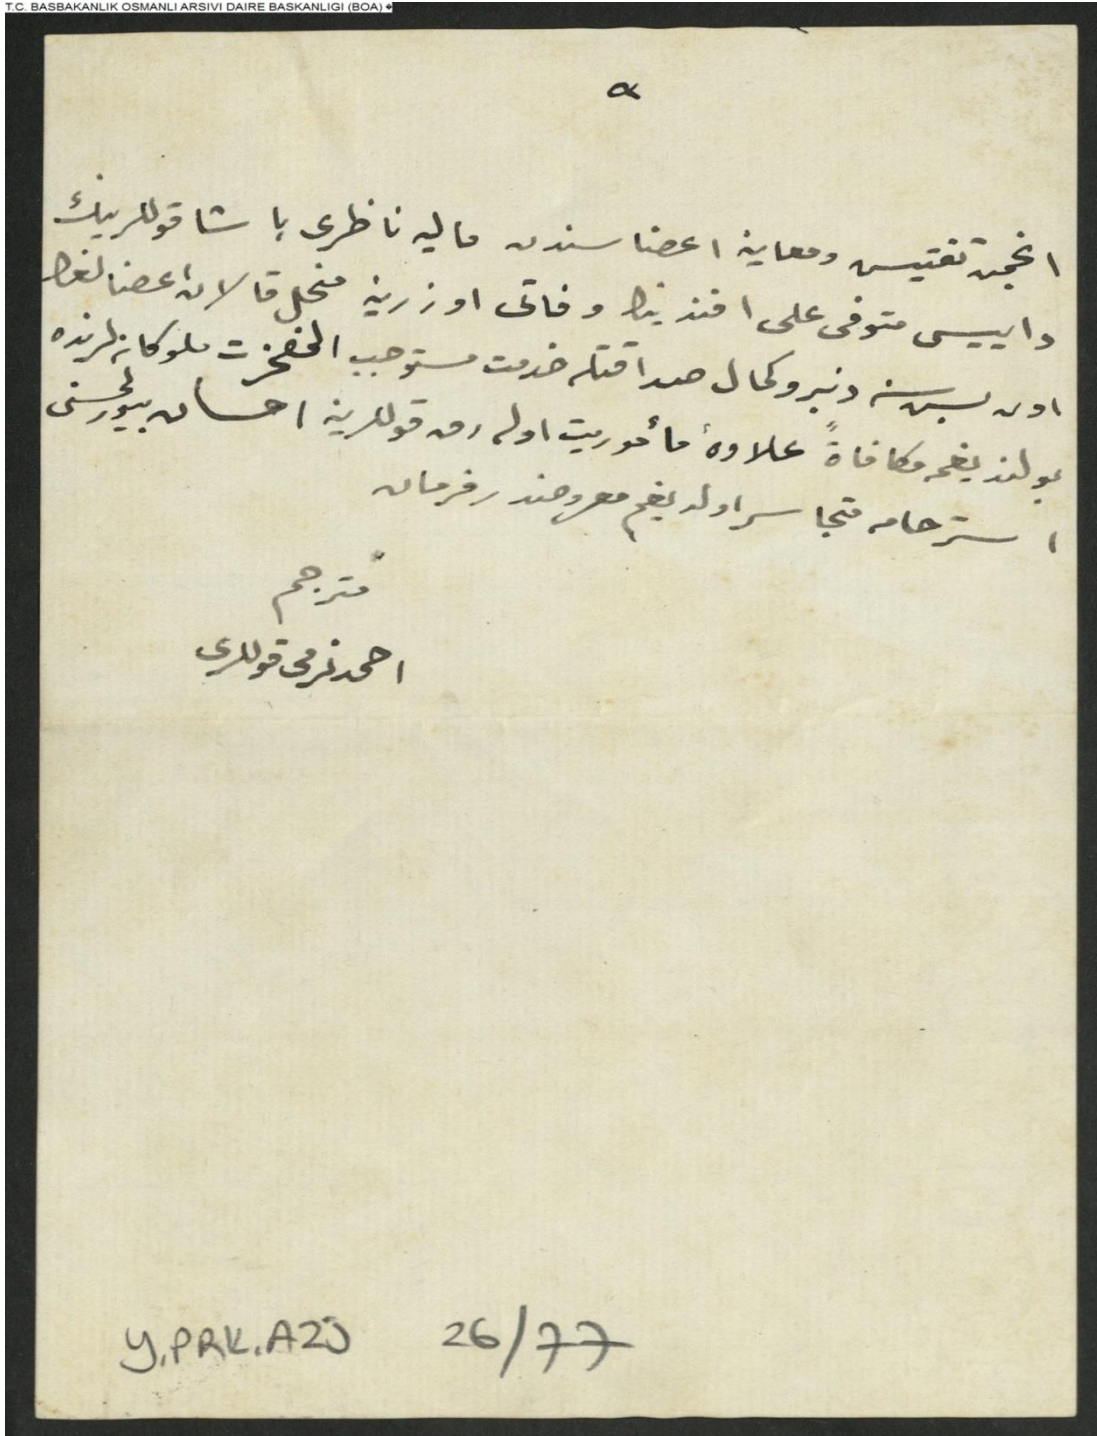 T.C. BASBAKANLIK OSMANLI ARSIVI DAIRE BASKANLIGI (BOA) �
انجمن تفتيش ومعاينه اعضاسندن ماليه ناظرى پاشا قوللرينك
داييسى متوفى على افندينك وفاتى اوزرينه منحل قالان اعضالغك
اون بش سنه دنبرو كمال صداقتله خدمت مستوجب المفخرت ملوكانه لرنده
بولنديغمه مكافاةً علاوۀ مأموريت اوله رق قوللرينه احسان بيورلمسنى
استرحامه متجاسر اولديغم معروضدر فرمان
مترجم
احمد نرمى قوللرى
Y.PRK.AZJ 26/77